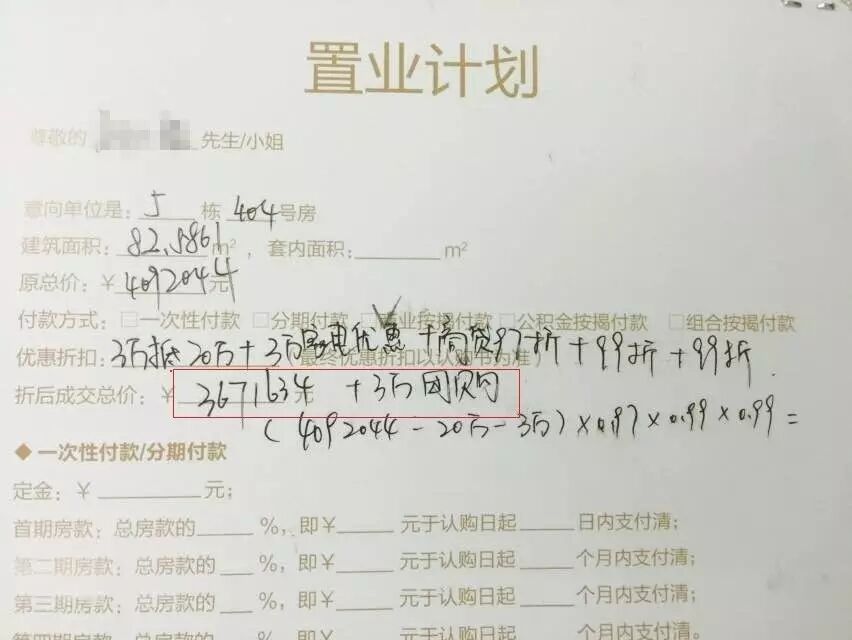 置业计划
尊敬的 先生/小姐
意向单位是: 5 栋 404 号房
建筑面积: 82.5861 m², 套内面积: m²
原总价: ¥4092044元
付款方式: □一次性付款 □分期付款 □商业按揭付款 □公积金按揭付款 □组合按揭付款
优惠折扣: 3万抵20万+3万家电优惠+商贷97折+99折+99折
(最终优惠折扣以认购书为准)
折后成交总价: ¥3671634元 +3万团购
(4092044-20万-3万)×0.97×0.99×0.99=
◆ 一次性付款/分期付款
定金: ¥ 元;
首期房款: 总房款的 %, 即¥ 元于认购日起 日内支付清;
第二期房款: 总房款的 %, 即¥ 元于认购日起 个月内支付清;
第三期房款: 总房款的 %, 即¥ 元于认购日起 个月内支付清;
第四期房款: 总房款的 %, 即¥ 元于认购日起 个月内支付清。